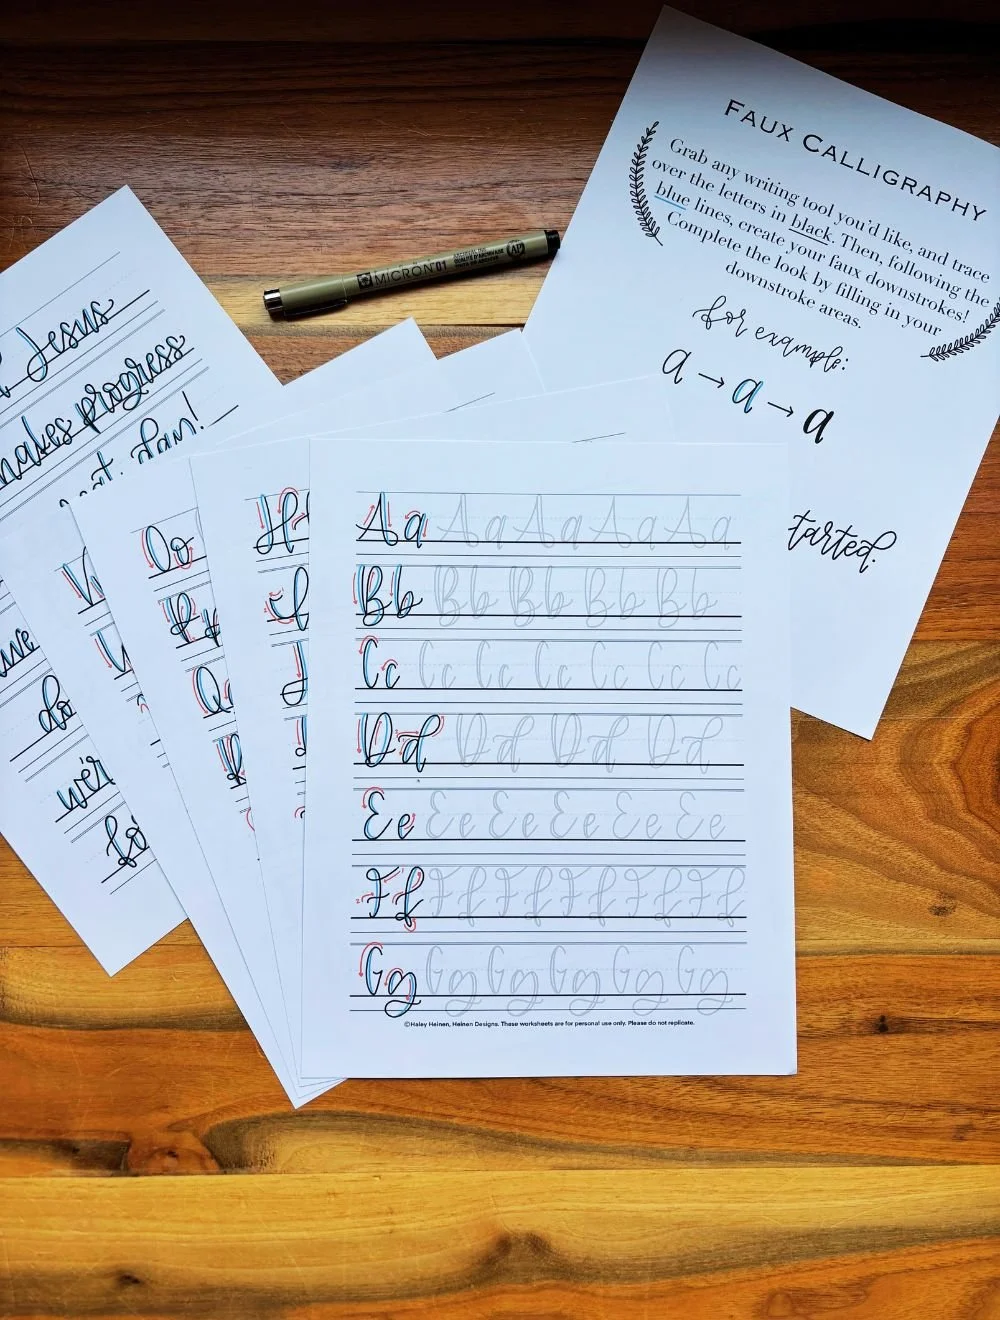 FAUX CALLIGRAPHY
Grab any writing tool you'd like, and trace
over the letters in black. Then, following the
blue lines, create your faux downstrokes!
Complete the look by filling in your
downstroke areas.
for example:
a → a → a
tarted.
MICRON 01
Jesus
makes progress
plan!
do
we'r
Oo
Aa Aa Aa Aa Aa
Bb Bb Bb Bb Bb
Cc Cc Cc Cc Cc Cc Cc
Dd Dd Dd Dd
Ee Ee Ee Ee Ee Ee
Ff Ff Ff Ff Ff Ff
Gg Gg Gg Gg Gg Gg
©Haley Heinen, Heinen Designs. These worksheets are for personal use only. Please do not replicate.